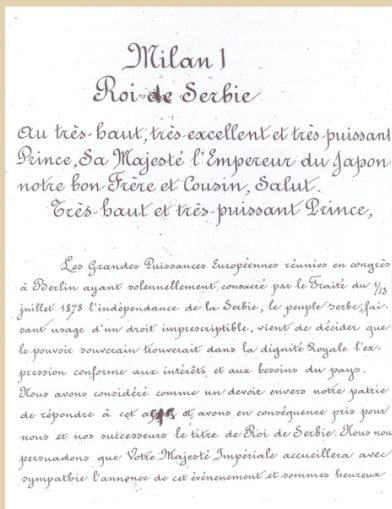 Milan I
Roi de Serbie
Au très-haut, très-excellent et très-puissant
Prince, Sa Majesté l'Empereur du Japon
notre bon Frère et Cousin, Salut.
Très-haut et très-puissant Prince,
Les Grandes Puissances Européennes réunies en congrès
à Berlin ayant solennellement consacré par le Traité du 1/13
juillet 1878 l'indépendance de la Serbie, le peuple serbe, fai-
sant usage d'un droit imprescriptible, vient de décider que
le pouvoir souverain trouverait dans la dignité Royale l'ex-
pression conforme aux intérêts et aux besoins du pays.
Nous avons considéré comme un devoir envers notre patrie
de répondre à cet et avons en conséquence pris pour
nous et nos successeurs le titre de Roi de Serbie. Nous nous
persuadons que Votre Majesté Impériale accueillera avec
sympathie l'annonce de cet événenement et sommes heureux